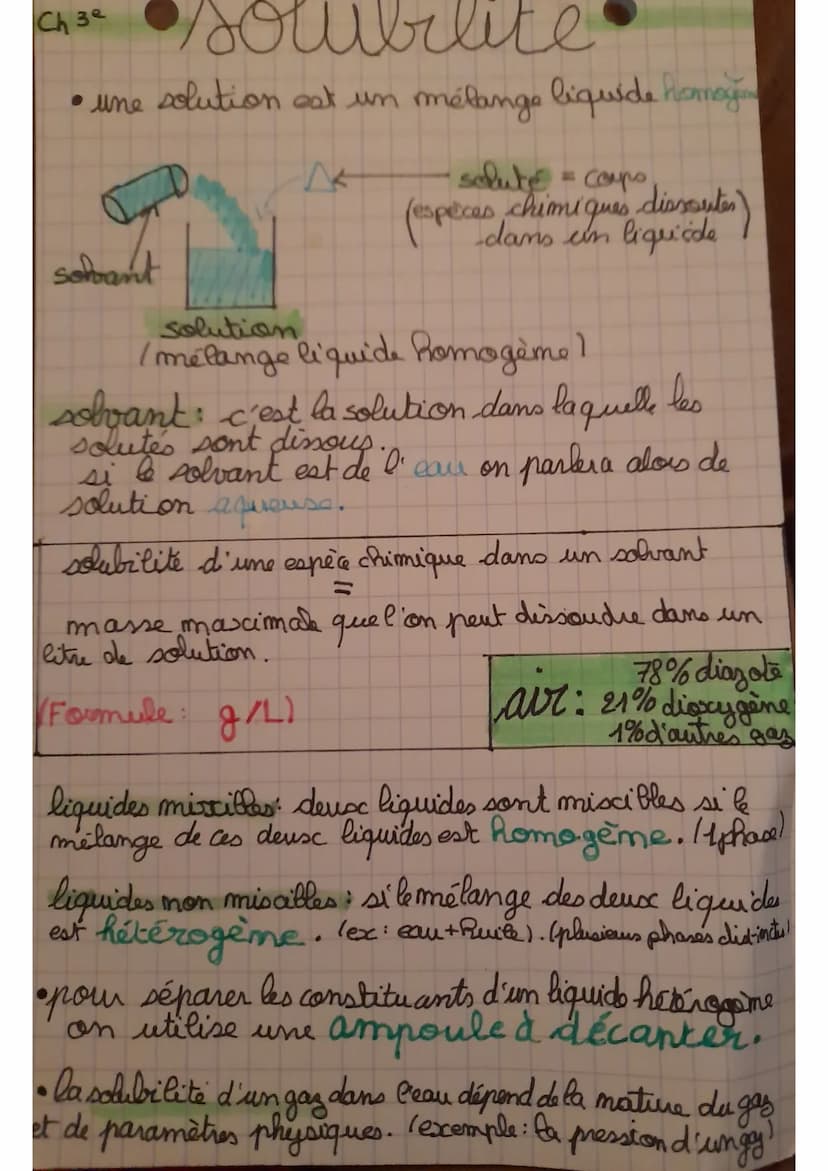 Ch 3e
• solubilité •
• une solution est un mélange liquide homogène
soluté = corps
(espèces chimiques dissoutes)
dans un liquide
solvant
solution
(mélange liquide homogème)
solvant : c'est la solution dans laquelle les
solutés sont dissous.
si le solvant est de l'eau on parlera alors de
solution aqueuse.
solubilité d'une espèce chimique dans un solvant
=
masse maximale que l'on peut dissoudre dans un
litre de solution.
(Formule : g/L)
air : 78% diazote
21% dioxygène
1% d'autres gaz
liquides miscibles : deux liquides sont miscibles si le
mélange de ces deux liquides est homogème. (1 phase)
liquides non miscibles : si le mélange des deux liquides
est hétérogème. (ex : eau + huile). (plusieurs phases distinctes)
• pour séparer les constituants d'un liquide hétérogème
on utilise une ampoule à décanter.
• la solubilité d'un gaz dans l'eau dépend de la nature du gaz
et de paramètres physiques. (exemple : la pression d'un gaz)